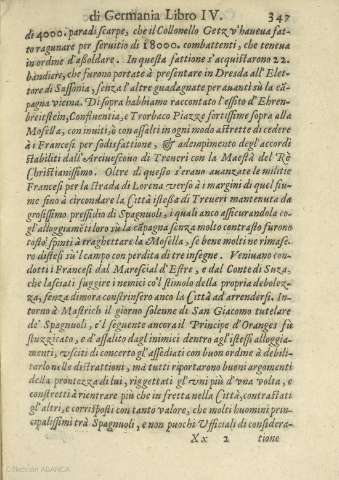 di Germania Libro IV. 347
di 4000. para di scarpe, che il Collonello Getz v'haueua fat-
to ragunare per seruitio di 18000. combattenti, che teneua
in ordine d'assoldare. In questa fattione s'acquistarono 22.
bandiere, che furono portate à presentare in Dresda all'Elet-
tore di Sassonia, senza l'altre guadagnate per auanti sù la cã-
pagna vicina. Di sopra habbiamo raccontato l'essito d'Ehren-
breitstein, Confluentia, e Trorbaco Piazze fortissime sopra alla
Mosella, con inuiti, ò con assalti in ogni modo astrette di cedere
à i Francesi per sodisfattione, & adempimento degl'accordi
stabiliti dall'Arciuescouo di Treueri con la Maestà del Rè
Christianissimo. Oltre di questo s'erano auanzate le militie
Francesi per la strada di Lorena verso à i margini di quel fiu-
me fino à circondare la Città istessa di Treueri mantenuta da
grosissimo pressidio di Spagnuoli, i quali anco assicurandola co-
gl'alloggiamẽti loro sù la cãpagna senza molto contrasto furono
tosto spinti à traghettare la Mosella, se bene molti ne rimase-
ro distesi sù'l campo con perdita di tre insegne. Veniuano con-
dotti i Francesi dal Marescial d'Estre, e dal Conte di Suza,
che lasciati fuggire i nemici cõ'l stimolo della propria debolez-
za, senza dimora constrinsero anco la Città ad arrendersi. In-
torno à Mastrich il giorno solenne di San Giacomo tutelare
de' Spagnuoli, e'l seguente ancora il Principe d'Oranges fù
stuzzicato, e d'assalito dagl'inimici dentro agl'istessi alloggia-
menti, vsciti di concerto gl'assediati con buon ordine à debili-
tarlo nelle distrattioni, ma tutti riportarono buoni argomenti
della prontezza di lui, riggettati gl'vni più d'vna volta, e
constretti à rientrare più che in fretta nella Città, contrastati
gl'altri, e corrisposti con tanto valore, che molti huomini prin-
cipalissimi trà Spagnuoli, e non puochi Vfficiali di considera-
Xx 2 tione
© Biblioteca ABANCA